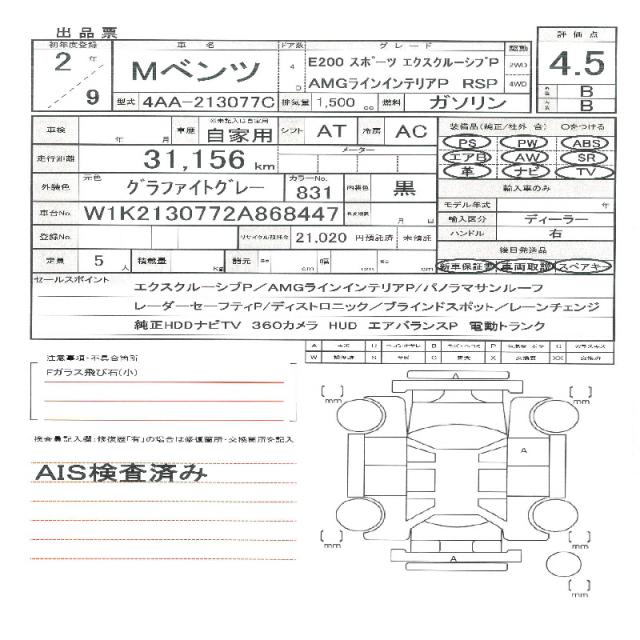 出品票
初年度登録 車名 ドア数 グレード 駆動 評価点
2 年 Mベンツ 4 D E200 スポーツ エクスクルーシブP 2WD 4.5
9 AMGラインインテリアP RSP 4WD B
型式 4AA-213077C 排気量 1,500 cc 燃料 ガソリン B
車検 年 月 車歴 ※未記入は自家用 自家用 シフト AT 冷房 AC 装備品(純正/社外 含) ○をつける
PS PW ABS
走行距離 31,156 km メーター エアB AW SR
革 ナビ TV
外装色 元色 グラファイトグレー カラーNo. 831 内装色 黒 輸入車のみ
モデル年式 年
車台No. W1K2130772A868447 月 日 輸入区分 ディーラー
登録No. リサイクル預託金 21,020 円預託済 未預託 ハンドル 右
後日発送品
定員 5 人 積載量 Kg 諸元 cm 幅 cm cm 新車保証書 車両取説 スペアキー
セールスポイント
エクスクルーシブP/AMGラインインテリアP/パノラマサンルーフ
レーダーセーフティP/ディストロニック/ブラインドスポット/レーンチェンジ
純正HDDナビTV 360カメラ HUD エアバランスP 電動トランク
A U B P G
W S C X XX
注意事項・不具合箇所
Fガラス飛び石(小)
検査員記入欄:修復歴「有」の場合は修復箇所・交換箇所を記入
AIS検査済み
mm
mm
A
mm
A
mm
mm